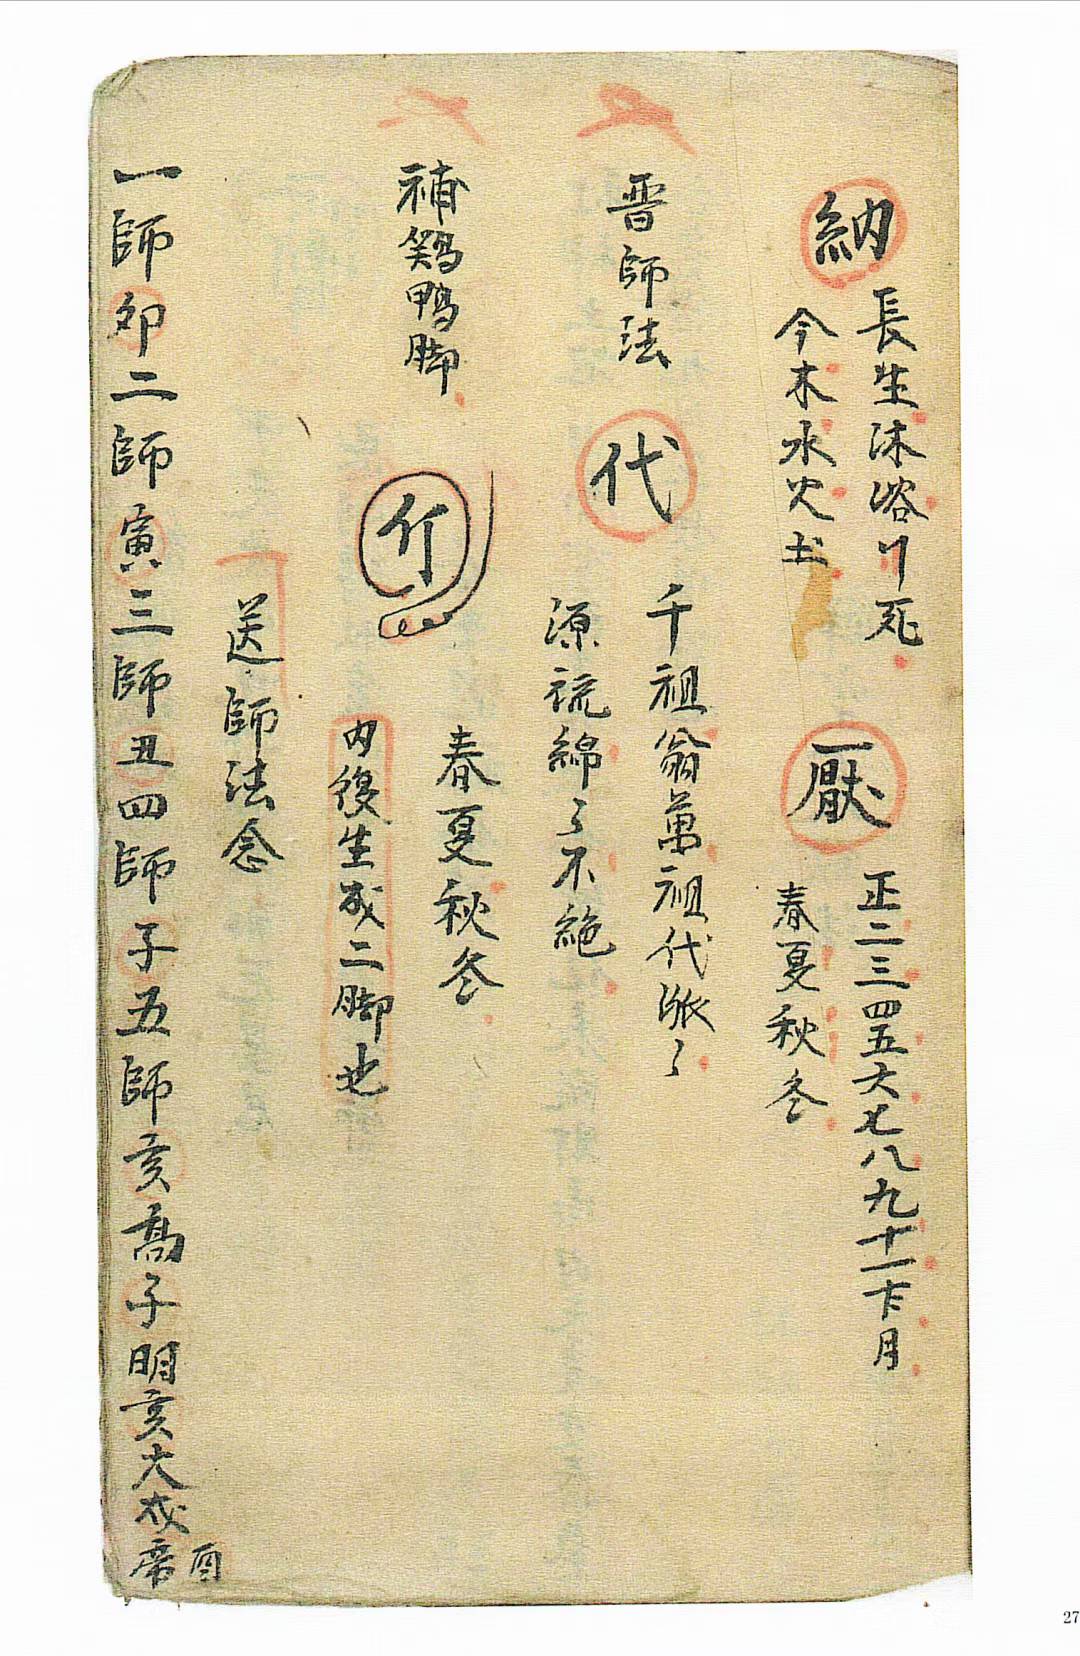 納
長生沐浴丩死
今木水火土
厭
正二三四五六七八九十一十下月
春夏秋冬
晋師法
代
千祖翁萬祖代派々
源流綿々不絶
補鷄鴨脚
春夏秋冬
内後生成二脚也
送師法念
一師卯二師寅三師丑四師子五師亥高子明亥大戌帝酉
27